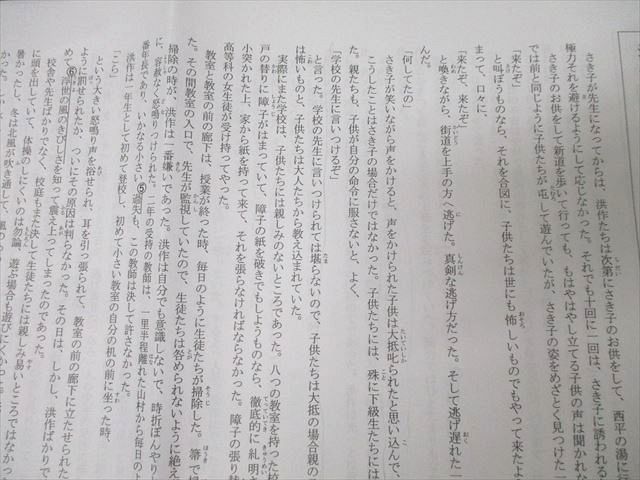 さき子が先生になってからは、洪作たちは次第にさき子のお供をして、西平の湯に行
極力それを避けるようにして応じなかった。それでも十回に一回は、さき子に誘われる
さき子のお供をして新道を歩いて行っても、もはやはやし立てる子供の声は聞かれな
では前と同じように子供たちが、屯して遊んでいたが、さき子の姿をめざとく見つけた一
「来たぞ」
と叫ぼうものなら、それを合図に、子供たちは世にも怖しいものでもやって来たよ
まって、口々に、
「来たぞ、来たぞ」
と喚きながら、街道を上手の方へ逃げた。真剣な逃げ方だった。そして逃げ遅れた一
んだ。
「何してたの」
さき子が笑いながら声をかけると、声をかけられた子供は大抵叱られたと思い込んで、
こうしたことはさき子の場合だけではなかった。子供たちには、殊に下級生たちには
た。親たちも、子供が自分の命令に服さないと、よく、
「学校の先生に言いつけるぞ」
と言った。学校の先生に言いつけられては堪らないので、子供たちは大抵の場合親の
は怖いものと、子供たちは大人たちから教え込まれていた。
実際にまた学校は、子供たちには親しみのないところであった。八つの教室を持った校
戸の替りに障子がはまっていて、障子の紙を破きでもしようものなら、徹底的に糺明さ
小突かれた上、家から紙を持って来て、それを張らなければならなかった。障子の張り替
高等科の女生徒が受け持ってやった。
教室と教室の前の廊下は、授業が終った時、毎日のように生徒たちが掃除した。箒で掃
た。その間教室の入口で、先生が監視していたので、生徒たちは咎められないように絶え
掃除の時が、洪作は一番嫌いであった。洪作は自分でも意識しないで、時折ぼんやりし
に、容赦なく怒鳴りつけられた。二年の受持の教師は、一里半程離れた山村から毎日のよ
番年長であり、いかなる小さい⑤過失も、この教師は決して許さなかった。
洪作は一年生として初めて登校し、初めて小さい教室の自分の机の前に坐った時、
「こら」
という大きい怒鳴り声を浴せられ、耳を引っ張られて、教室の前の廊下に立たせられた
ように罰せられたか、ついにその原因は判らなかった。その日は、しかし、洪作ばかりで
めて⑥浮世の風のきびしさを知って震え上ってしまったのであった。
校舎や先生ばかりでなく、校庭もまた決して生徒たちには親しみ易いところではなかっ
に頭を出していて、体操のしにくいのは勿論、遊ぶ場合も遊びにくかった
暑かったし、冬は北風が吹き通して、